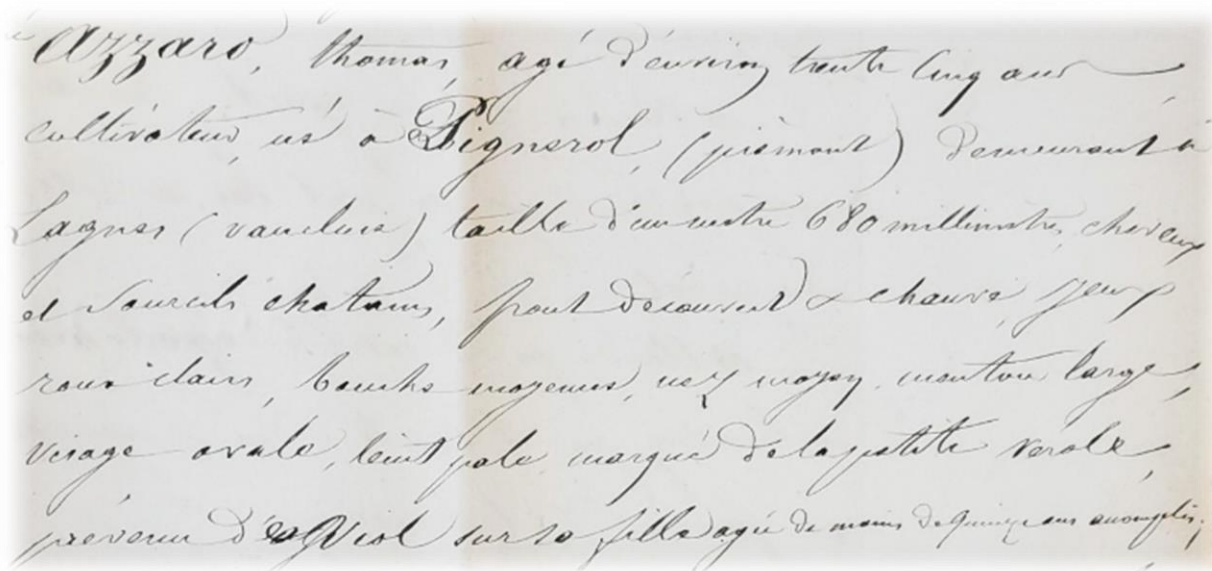 Azzaro, thomas, agé d'environ trente cinq ans
cultivateur, né à Pignerol, (piémont) demeurant à
Lagnes (vaucluse) taille d'un metre 680 millimetres, cheveux
et sourcils chatains, front decouvert & chauve, yeux
roux clairs, bouche moyenne, nez moyen, menton large,
visage ovale, teint pale, marqué de la petite verole,
prévenu de Viol sur sa fille agée de moins de quinze ans accomplis;